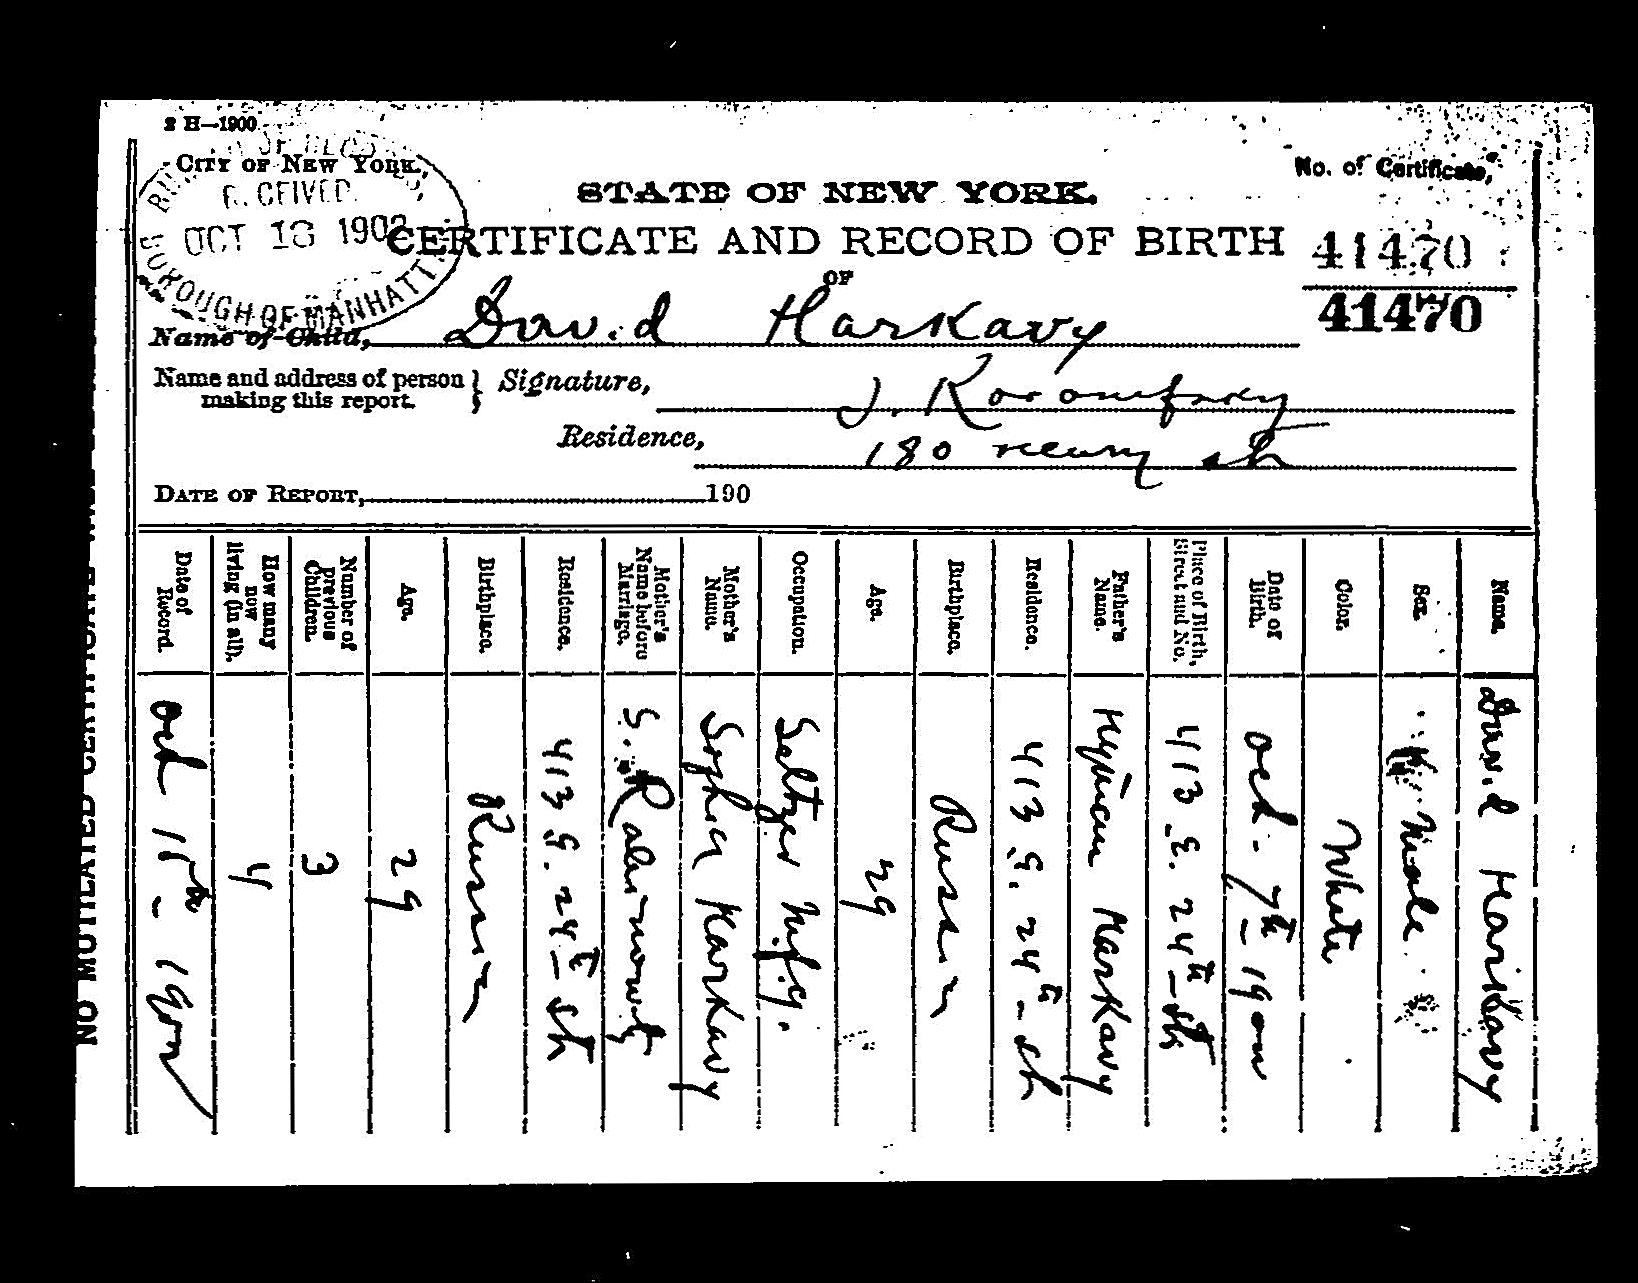 2 H—1900
CITY OF NEW YORK,
RECEIVED
OCT 18 1902
BOROUGH OF MANHATTAN
STATE OF NEW YORK.
No. of Certificate,
CERTIFICATE AND RECORD OF BIRTH
41470
OF
41470
Name of Child, David Harkavy
Name and address of person making this report. } Signature, J.
Residence, 180 Henry st
DATE OF REPORT, 190
Name. David Harkavy
Sex. Male
Color. White
Date of Birth. Oct. 7th 1902
Place of Birth, Street and No. 413 E. 24th St
Father's Name. Hyman Harkavy
Residence. 413 E. 24th st
Birthplace. Russia
Age. 29
Occupation. Seltzer Mfg.
Mother's Name. Sophia Harkavy
Mother's Name before Marriage. S. Rabinowitz
Residence. 413 E. 24th st
Birthplace. Russia
Age. 29
Number of previous Children. 3
How many now living (in all). 4
Date of Record. Oct 15th - 1902
NO MUTILATED CERTIFICATE WILL BE